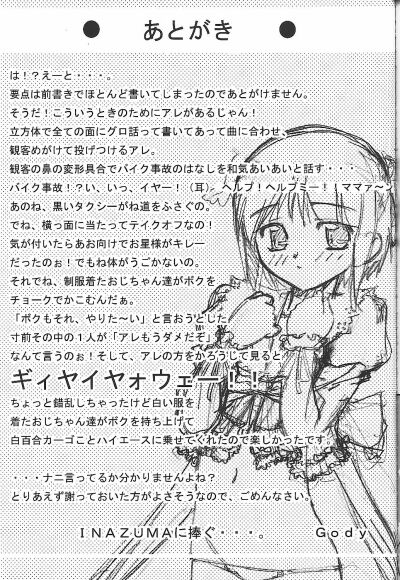 ● あとがき ●
は！?えーと・・・。
要点は前書きでほとんど書いてしまったのであとがけません。
そうだ！こういうときのためにアレがあるじゃん！
立方体で全ての面にグロ話って書いてあって曲に合わせ、
観客めがけて投げつけるアレ。
観客の鼻の変形具合でバイク事故のはなしを和気あいあいと話す・・・
バイク事故！?い、いっ、イヤー！（耳）ヘルプ！ヘルプミー！！ママァ〜ン
あのね、黒いタクシーがね道をふさぐのぅ。
でね、横っ面に当たってテイクオフなの！
気が付いたらあお向けでお星様がキレー
だったのぉ！でもね体がうごかないの。
それでね、制服着たおじちゃん達がボクを
チョークでかこむんだぁ。
「ボクもそれ、やりた〜い」と言おうとした
寸前その中の１人が「アレもうダメだぞ」
なんて言うのぉ！そして、アレの方をかろうじて見ると
ギィヤイヤォウェー！！
ちょっと錯乱しちゃったけど白い服を
着たおじちゃん達がボクを持ち上げて
白百合カーゴことハイエースに乗せてくれたので楽しかったです。
・・・ナニ言ってるか分かりませんよね？
とりあえず謝っておいた方がよさそうなので、ごめんなさい。
ＩＮＡＺＵＭＡに捧ぐ・・・。　Ｇｏｄｙ